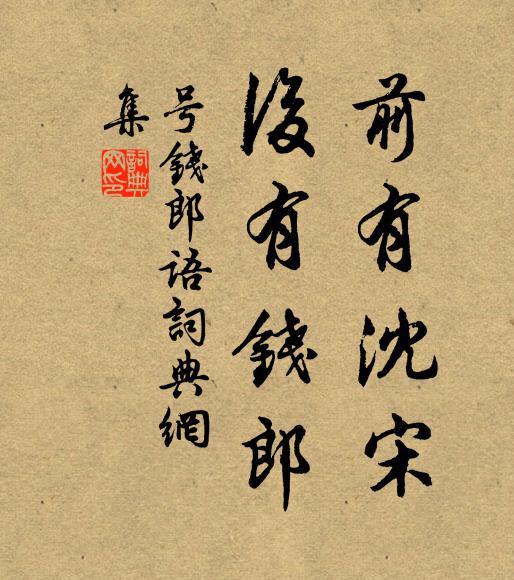 前有沈宋
後有錢郎
号錢郎語詞典網
集
詞典
网印